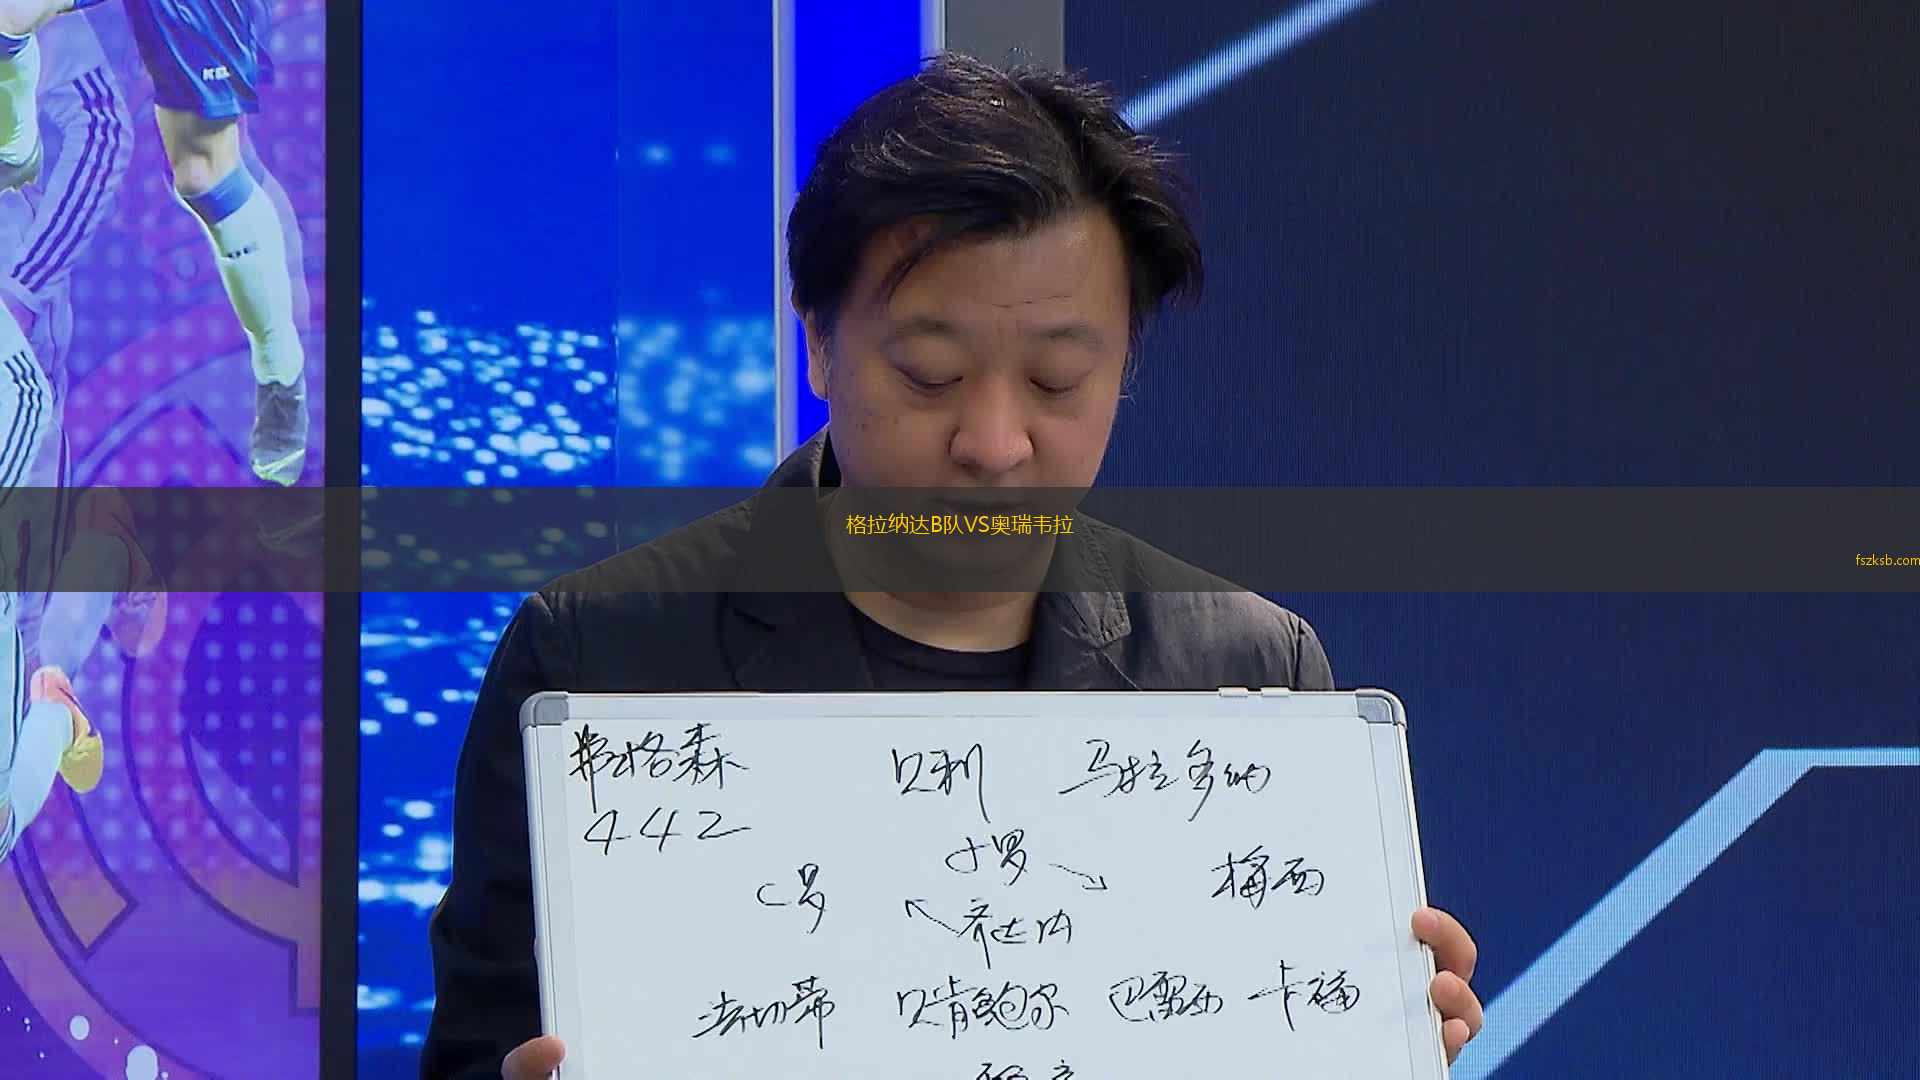 KEL
格拉纳达B队VS奥瑞韦拉
fszksb.com
弗格森 贝利 马拉多纳
442
小罗
C罗 梅西
齐达内
法切蒂 贝肯鲍尔 巴雷西 卡福